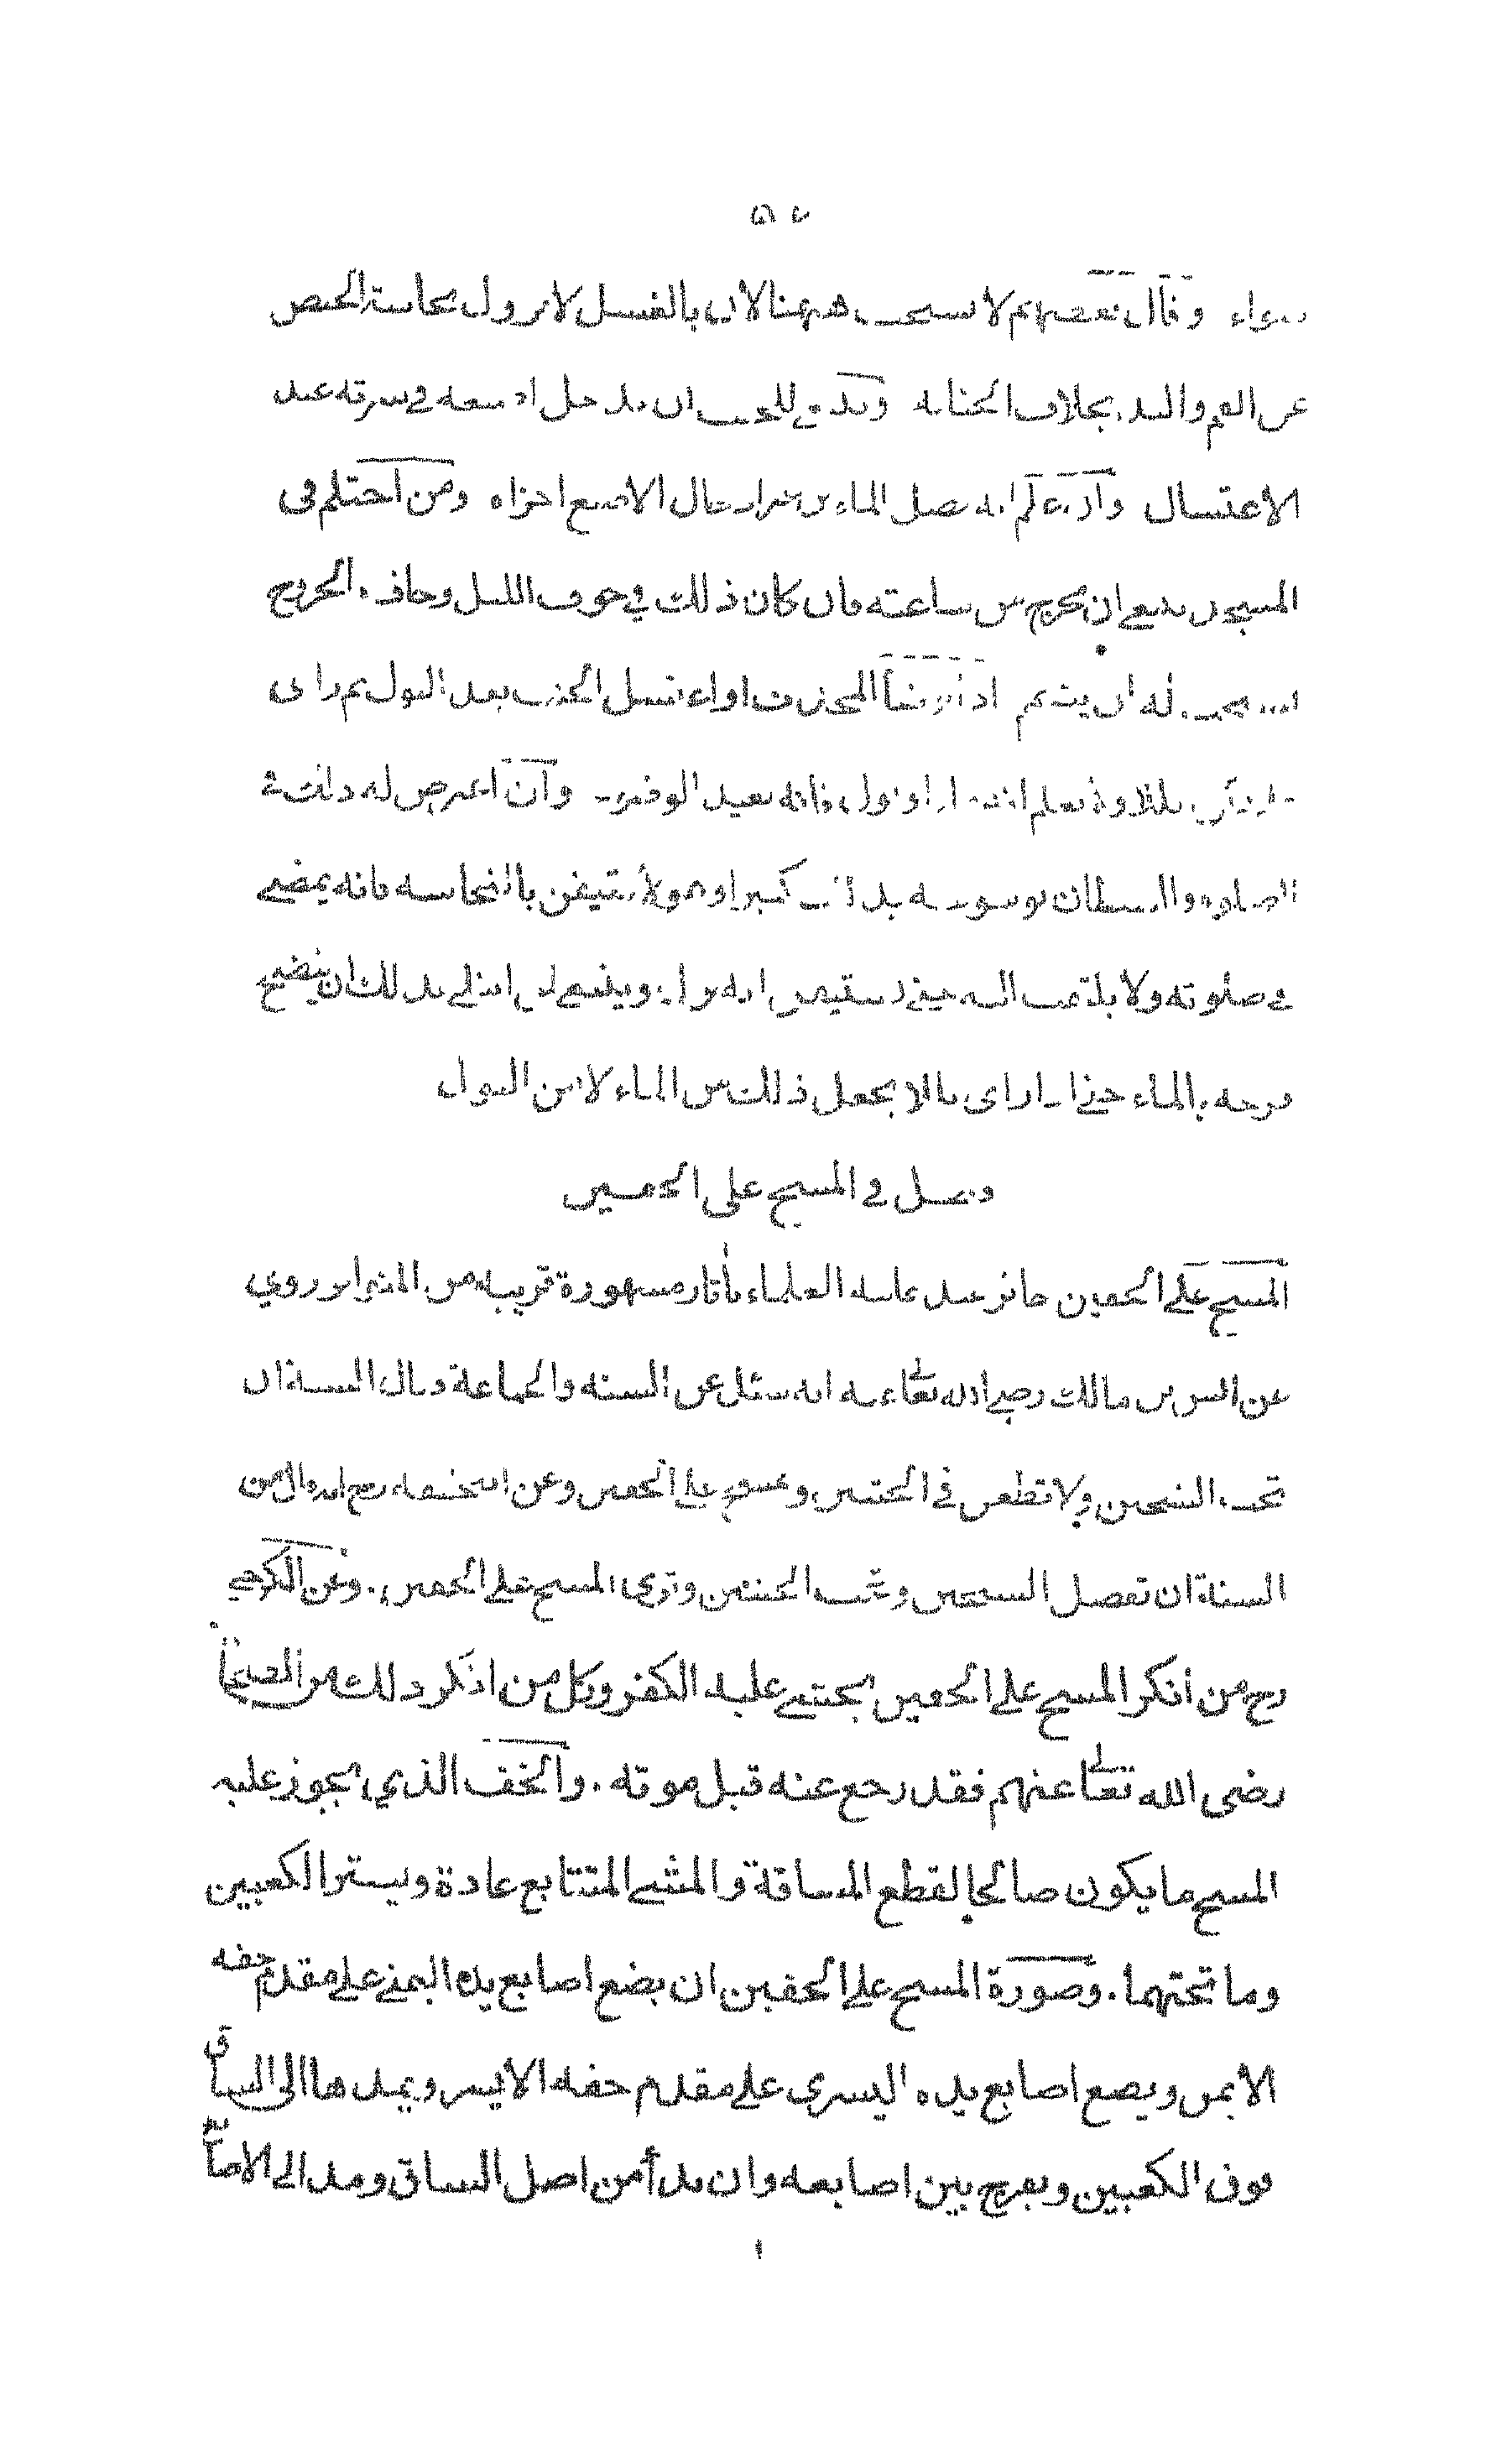 ٥٧
سواء وقال بعضهم لا يستحب ههنا لان بالغسل لا يزول نجاسة الحيض
عن الفم واليد بخلاف الجنابة وينبغي للجنب ان يدخل اصبعه في سرته عند
الاغتسال وان علم انه يصل الماء من غير ادخال الاصبع اجزاه ومن احتلم في
المسجد ينبغي ان يخرج من ساعته فان كان ذلك في جوف الليل وخاف الخروج
يستحب له ان يتيمم اذا توضأ المحدث او اغتسل الجنب بعد البول ثم راى
ولا يعلم انه ماء او بول فانه يعيد الوضوء وان اعترض له ذلك في
الصلوة والشيطان يوسوسه بذلك كثيرا وهو لا يتيقن بالنجاسة فانه يمضي
في صلوته ولا يلتفت اليه حتى يستيقن انه بول وينبغي لمن ابتلي بذلك ان ينضح
فرجه بالماء حتى اذا راى بللا يجعل ذلك من الماء لا من البول
فصل في المسح على الخفين
المسح على الخفين جائز عند عامة العلماء بآثار مشهورة قريبة من المتواتر روي
عن انس بن مالك رضي الله تعالى عنه انه سئل عن السنة والجماعة فقال السنة ان
تحب الشيخين ولا تطعن في الختنين وتمسح على الخفين وعن ابي حنيفة رح انه قال من
السنة ان تفضل الشيخين وتحب الختنين وترى المسح على الخفين وعن الكرخي
رح من انكر المسح على الخفين يخشى عليه الكفر وكل من انكر ذلك من الصحابة
رضى الله تعالى عنهم فقد رجع عنه قبل موته والخف الذي يجوز عليه
المسح ما يكون صالحا لقطع المسافة والمشي المتتابع عادة ويستر الكعبين
وما تحتهما وصورة المسح على الخفين ان يضع اصابع يده اليمنى على مقدم خفه
الايمن ويضع اصابع يده اليسرى على مقدم خفه الايسر ويمدها الى الساق
فوق الكعبين ويفرج بين اصابعه وان بدأ من اصل الساق ومد الى الاصابع